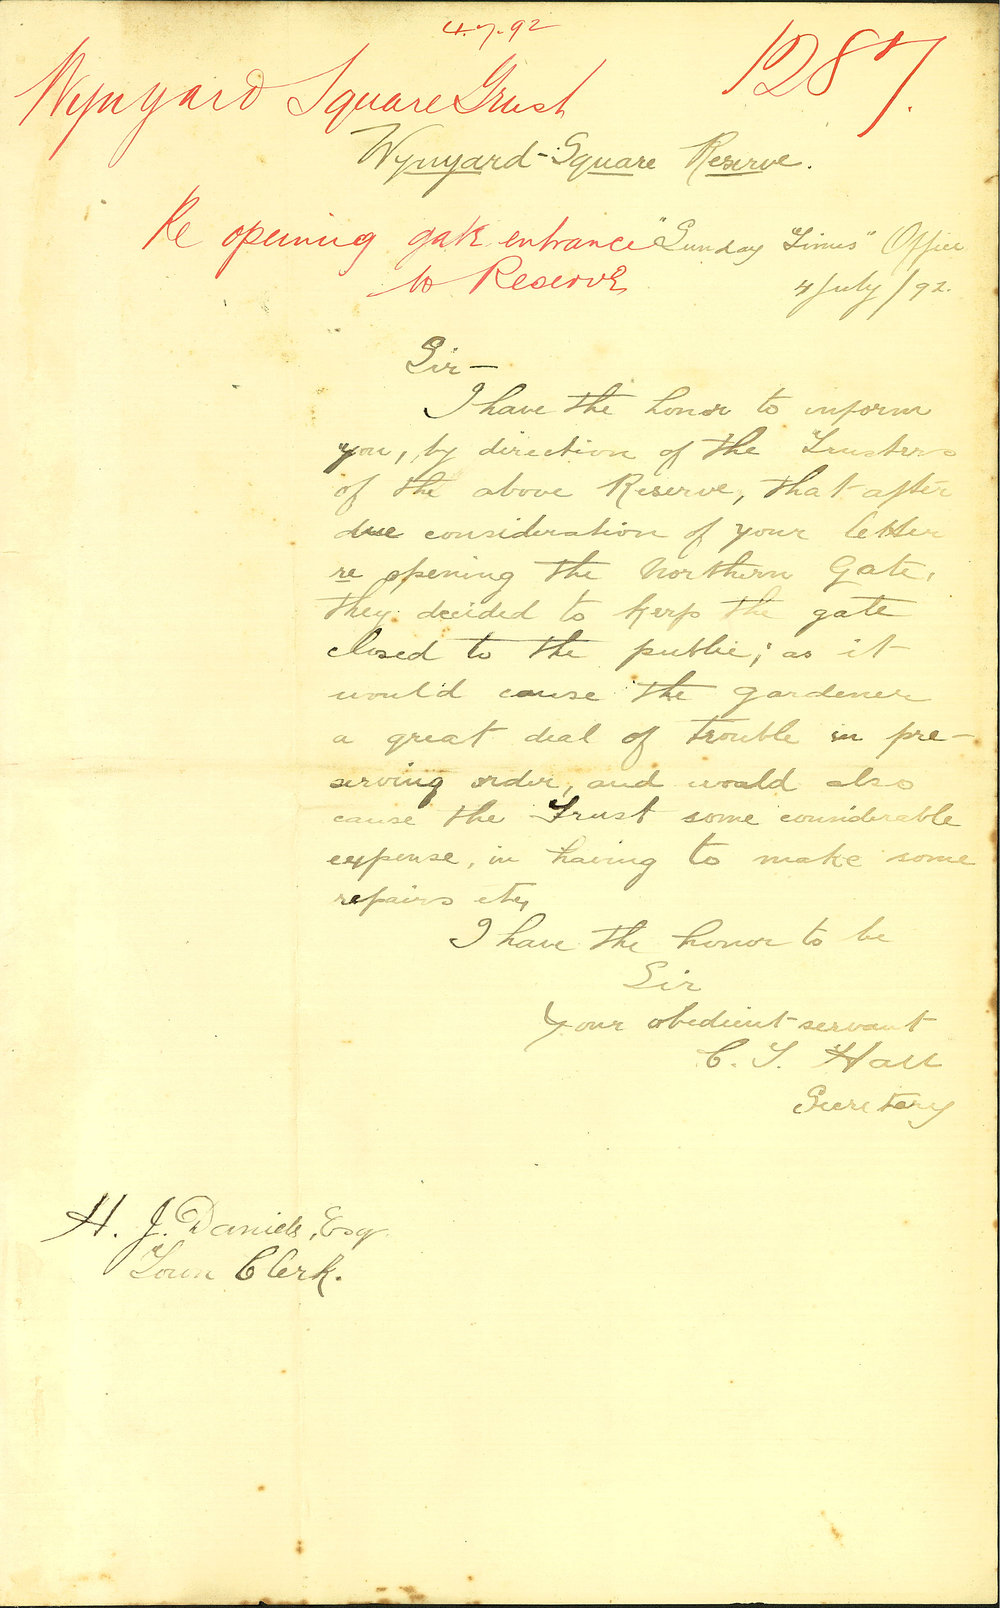 4.7.92
Wynyard Square Trust
1287.
Wynyard-Square Reserve.
Re opening gate entrance
to Reserve
"Sunday Times" Office
4 July/92.
Sir—
I have the honor to inform
you, by direction of the Trustees
of the above Reserve, that after
due consideration of your letter
re opening the Northern Gate,
they decided to keep the gate
closed to the public; as it
would cause the gardener
a great deal of trouble in pre-
serving order, and would also
cause the Trust some considerable
expense, in having to make some
repairs etc,
I have the honor to be
Sir
Your obedient servant
C. T. Hall
Secretary
H. J. Daniels, Esq
Town Clerk.